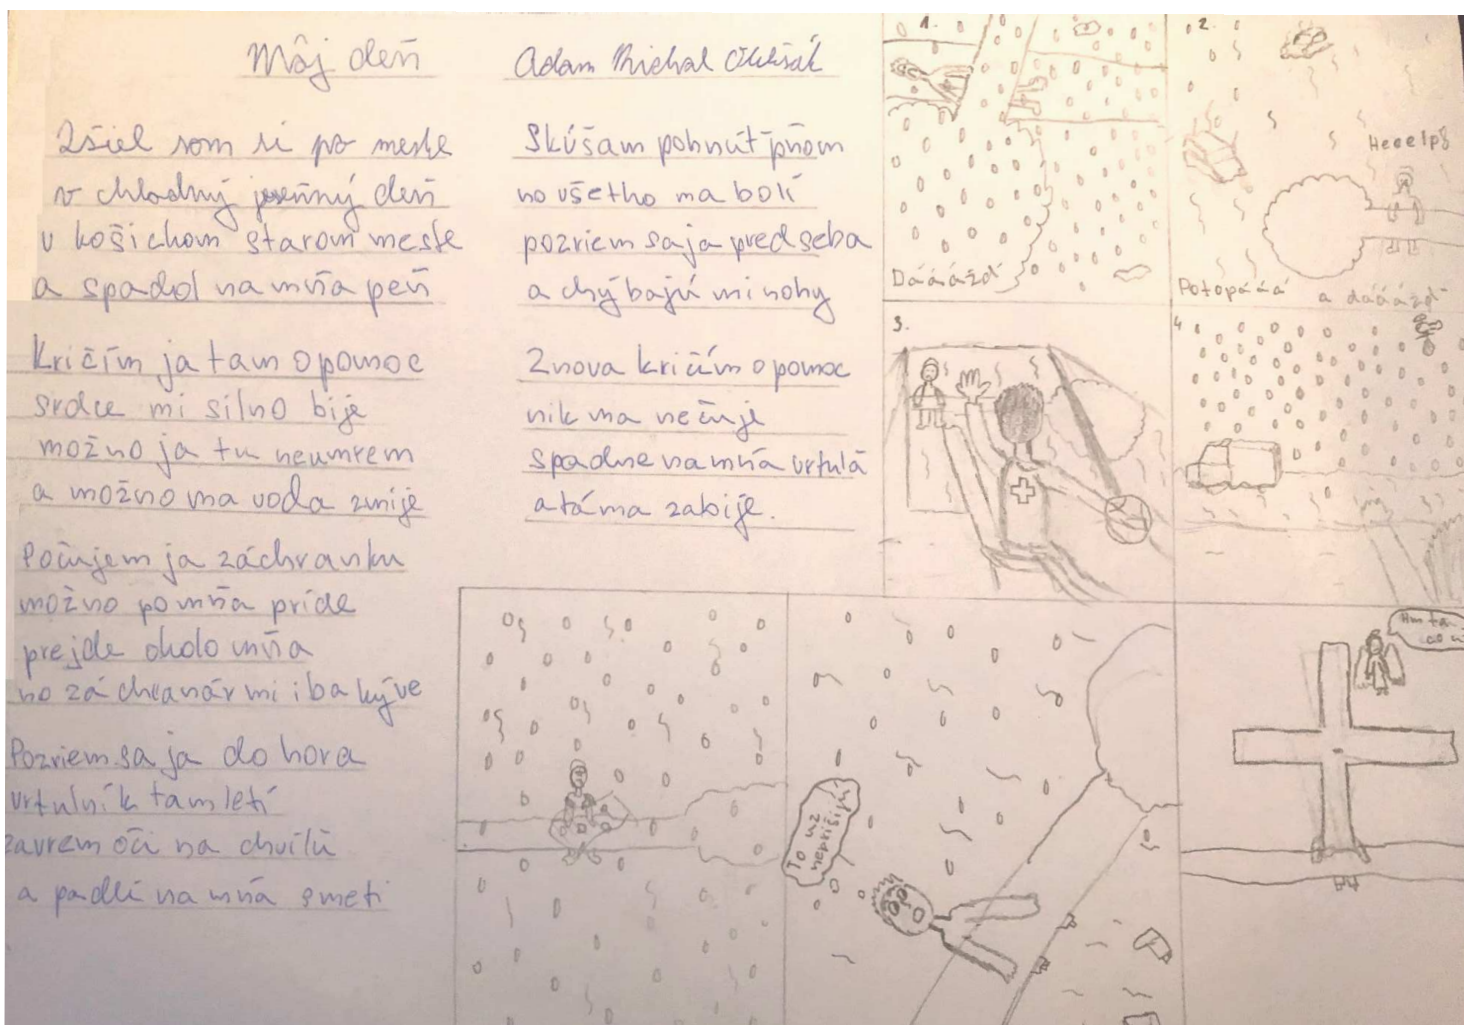 Môj deň
Adam Michal
Išiel som si po meste
v chladný jesenný deň
v košickom starom meste
a spadol na mňa peň
Kričím ja tam o pomoc
srdce mi silno bije
možno ja tu neumrem
a možno ma voda zmije
Počujem ja záchranku
možno po mňa príde
prejde okolo mňa
no záchranár mi iba kýve
Pozriem sa ja do hora
vrtulník tam letí
zavrem oči na chvílu
a padli na mňa smeti
Skúšam pohnut pňom
no všetko ma bolí
pozriem sa ja pred seba
a chýbajú mi nohy
Znova kričím o pomoc
nik ma nečuje
spadne na mňa vrtulá
a tá ma zabije.
1.
Dááážď
2.
Heeelp
Potopááá a dááážď
3.
4
To už
neprišijú
Hm ta